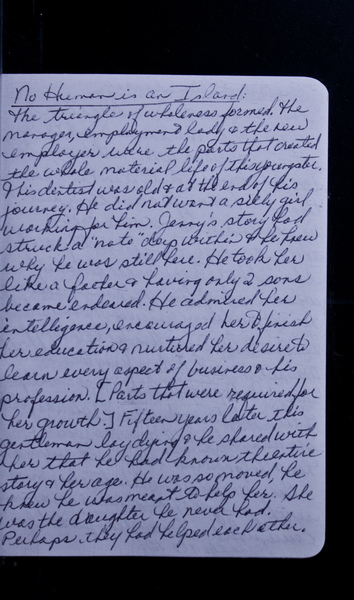 No Human is an Island:
The triangle of wholeness formed. The
manager, employment lady & the new
employer were the parts that created
the whole material life of this youngster.
This dentist was old & at the end of his
journey. He did not want a silly girl
working for him. Jenny's story had
struck a "note" deep within & he knew
why he was still here. He took her
like a father & having only 2 sons
became endeared. He admired her
intelligence, encouraged her to finish
her education & nurtured her desire to
learn every aspect of business & his
profession. [Parts that were required for
her growth.] Fifteen years later this
gentleman lay dying & he shared with
her that he had known the entire
story & her age. He was so moved, he
knew he was meant to help her. She
was the daughter he never had.
Perhaps they had helped each other.